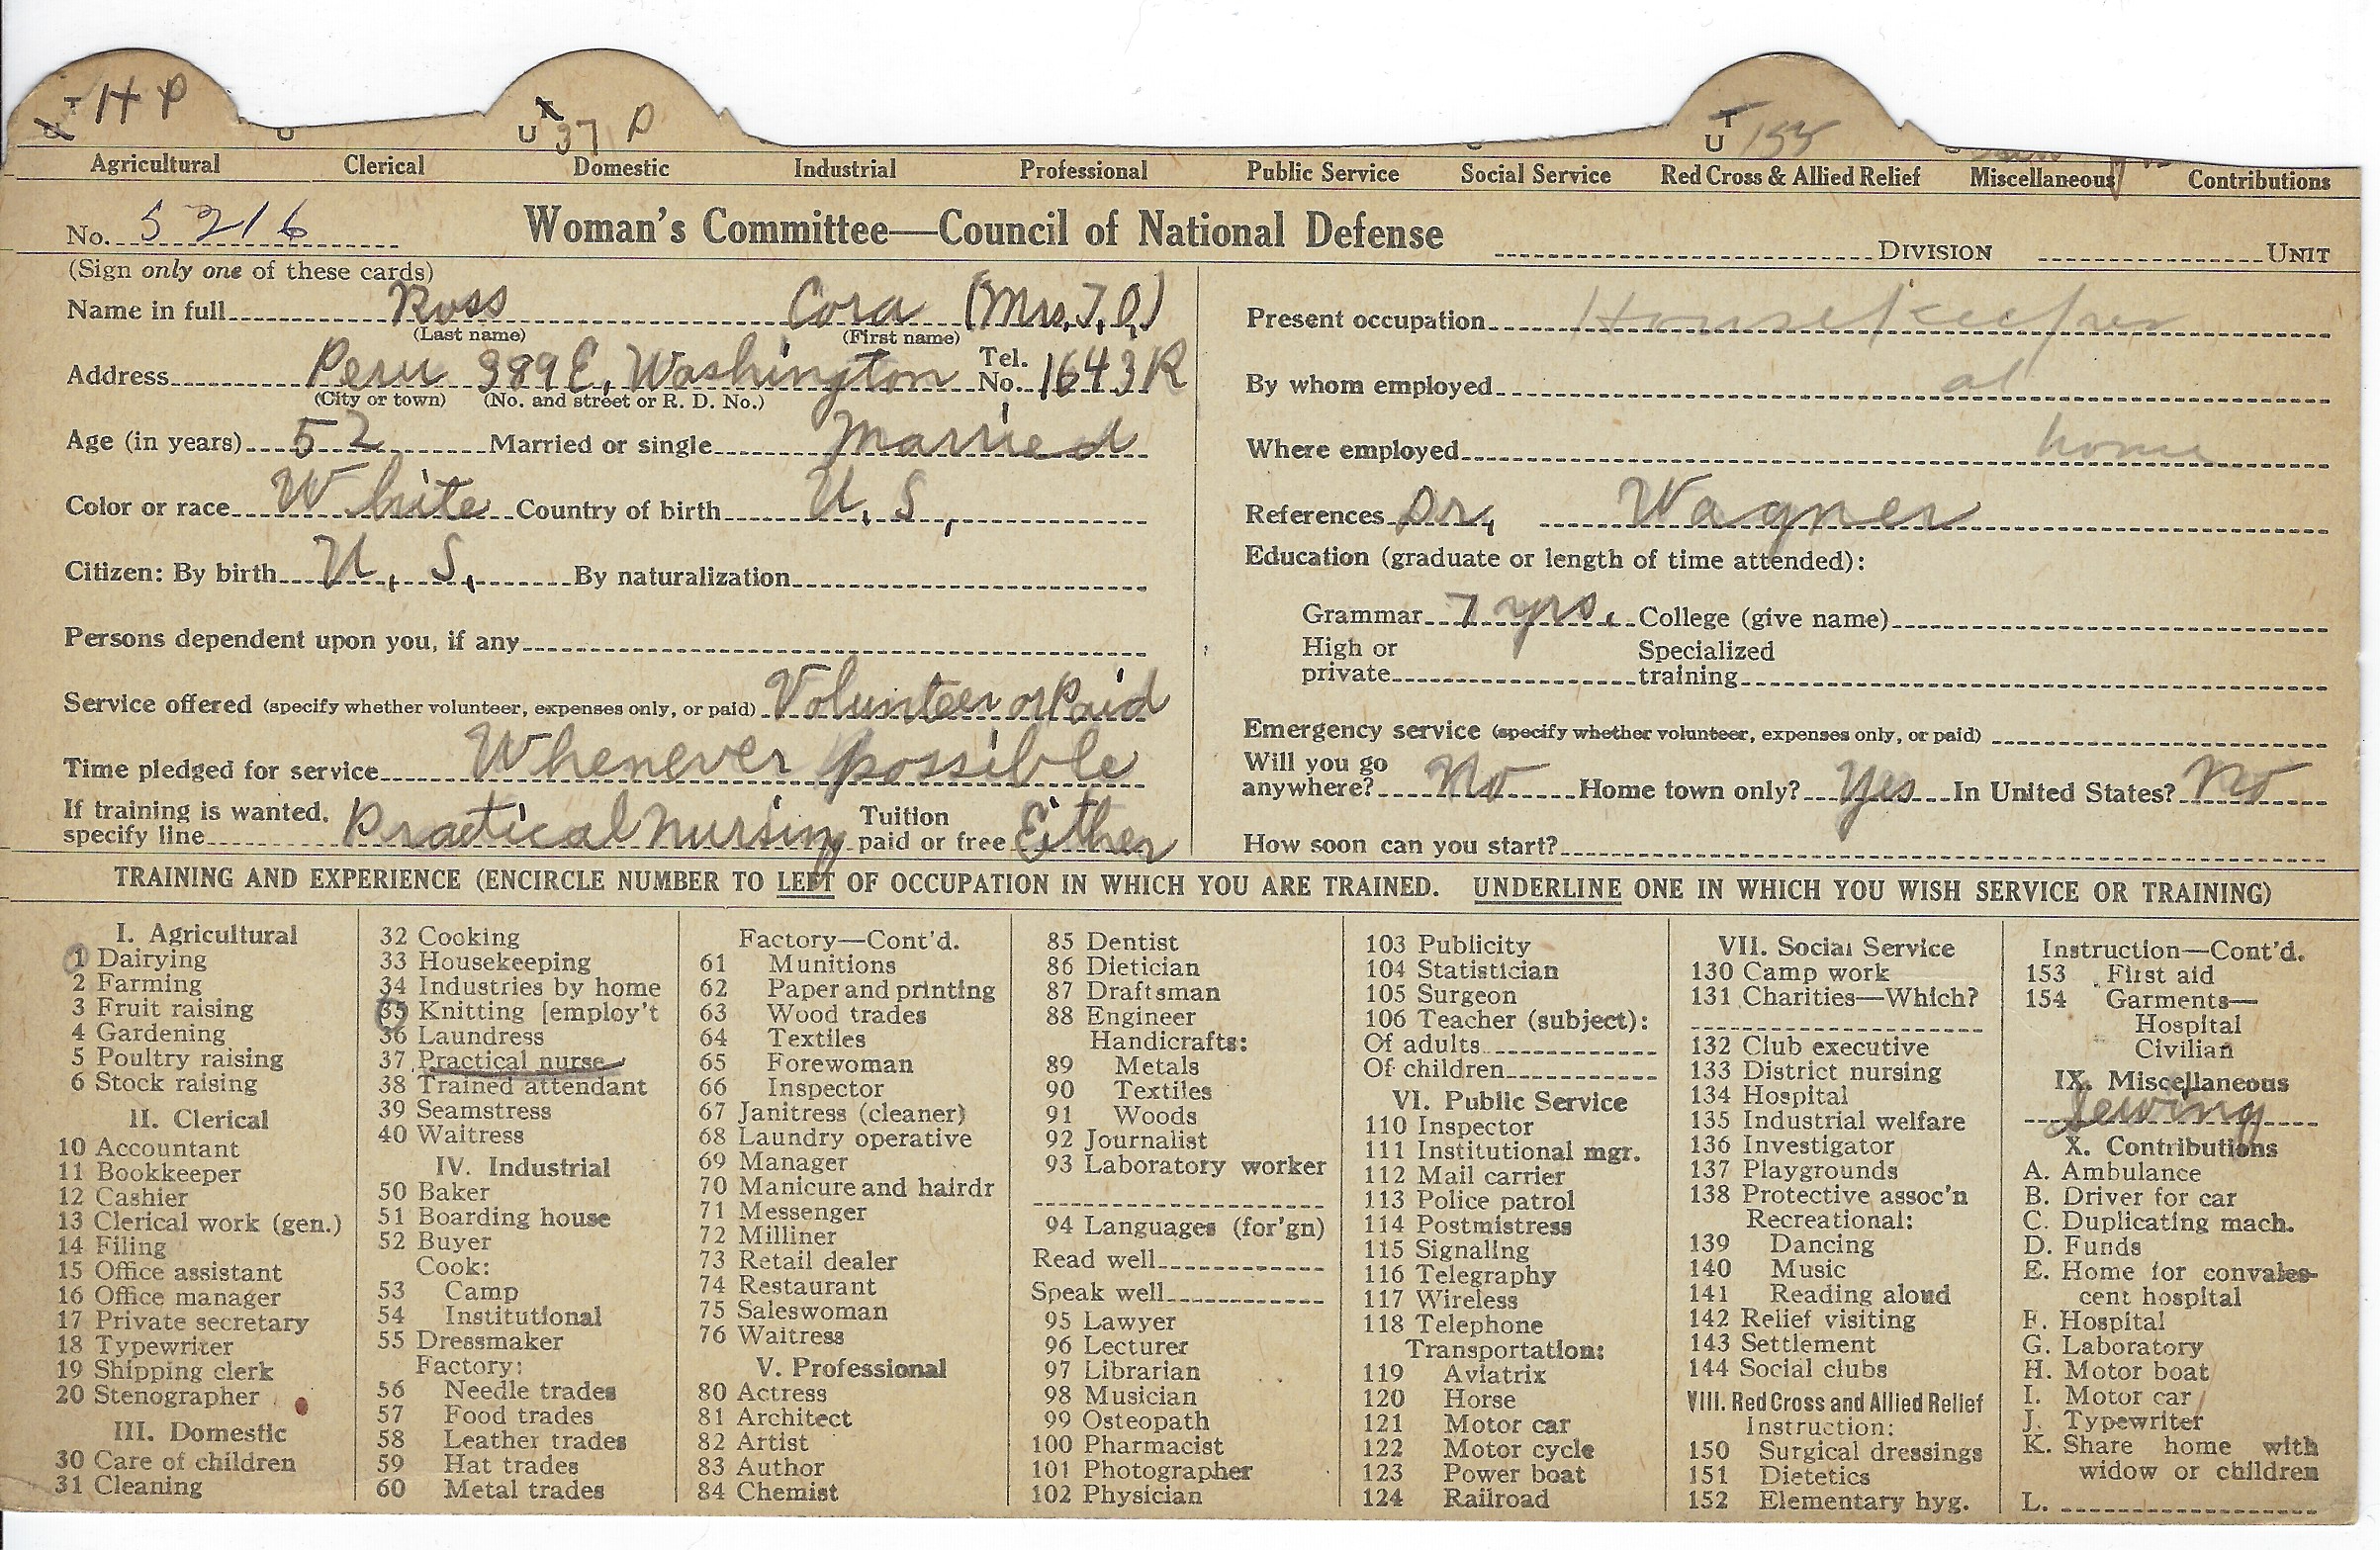 T H P
U
U T 37 P
U T 155
Agricultural Clerical Domestic Industrial Professional Public Service Social Service Red Cross & Allied Relief Miscellaneous Contributions
No. 5216 Woman's Committee—Council of National Defense DIVISION UNIT
(Sign only one of these cards)
Name in full Ross Cora (Mrs. J. O.)
(Last name) (First name)
Address Peru 389 E. Washington Tel. No. 1643R
(City or town) (No. and street or R. D. No.)
Age (in years) 52 Married or single Married
Color or race White Country of birth U. S.
Citizen: By birth U. S. By naturalization
Persons dependent upon you, if any
Service offered (specify whether volunteer, expenses only, or paid) Volunteer or Paid
Time pledged for service Whenever possible
If training is wanted, specify line Practical nursing Tuition paid or free Either
Present occupation Housekeeper
By whom employed at
Where employed home
References Dr. Wagner
Education (graduate or length of time attended):
Grammar 7 yrs. College (give name)
High or private Specialized training
Emergency service (specify whether volunteer, expenses only, or paid)
Will you go anywhere? No Home town only? Yes In United States? No
How soon can you start?
TRAINING AND EXPERIENCE (ENCIRCLE NUMBER TO LEFT OF OCCUPATION IN WHICH YOU ARE TRAINED. UNDERLINE ONE IN WHICH YOU WISH SERVICE OR TRAINING)
I. Agricultural
1 Dairying
2 Farming
3 Fruit raising
4 Gardening
5 Poultry raising
6 Stock raising
II. Clerical
10 Accountant
11 Bookkeeper
12 Cashier
13 Clerical work (gen.)
14 Filing
15 Office assistant
16 Office manager
17 Private secretary
18 Typewriter
19 Shipping clerk
20 Stenographer
III. Domestic
30 Care of children
31 Cleaning
32 Cooking
33 Housekeeping
34 Industries by home
35 Knitting [employ't
36 Laundress
37 Practical nurse
38 Trained attendant
39 Seamstress
40 Waitress
IV. Industrial
50 Baker
51 Boarding house
52 Buyer
Cook:
53 Camp
54 Institutional
55 Dressmaker
Factory:
56 Needle trades
57 Food trades
58 Leather trades
59 Hat trades
60 Metal trades
Factory—Cont'd.
61 Munitions
62 Paper and printing
63 Wood trades
64 Textiles
65 Forewoman
66 Inspector
67 Janitress (cleaner)
68 Laundry operative
69 Manager
70 Manicure and hairdr
71 Messenger
72 Milliner
73 Retail dealer
74 Restaurant
75 Saleswoman
76 Waitress
V. Professional
80 Actress
81 Architect
82 Artist
83 Author
84 Chemist
85 Dentist
86 Dietician
87 Draftsman
88 Engineer
Handicrafts:
89 Metals
90 Textiles
91 Woods
92 Journalist
93 Laboratory worker
94 Languages (for'gn)
Read well
Speak well
95 Lawyer
96 Lecturer
97 Librarian
98 Musician
99 Osteopath
100 Pharmacist
101 Photographer
102 Physician
103 Publicity
104 Statistician
105 Surgeon
106 Teacher (subject):
Of adults
Of children
VI. Public Service
110 Inspector
111 Institutional mgr.
112 Mail carrier
113 Police patrol
114 Postmistress
115 Signaling
116 Telegraphy
117 Wireless
118 Telephone
Transportation:
119 Aviatrix
120 Horse
121 Motor car
122 Motor cycle
123 Power boat
124 Railroad
VII. Social Service
130 Camp work
131 Charities—Which?
132 Club executive
133 District nursing
134 Hospital
135 Industrial welfare
136 Investigator
137 Playgrounds
138 Protective assoc'n
Recreational:
139 Dancing
140 Music
141 Reading aloud
142 Relief visiting
143 Settlement
144 Social clubs
VIII. Red Cross and Allied Relief
Instruction:
150 Surgical dressings
151 Dietetics
152 Elementary hyg.
Instruction—Cont'd.
153 First aid
154 Garments—
Hospital
Civilian
IX. Miscellaneous
Sewing
X. Contributions
A. Ambulance
B. Driver for car
C. Duplicating mach.
D. Funds
E. Home for convales-
cent hospital
F. Hospital
G. Laboratory
H. Motor boat
I. Motor car
J. Typewriter
K. Share home with
widow or children
L.